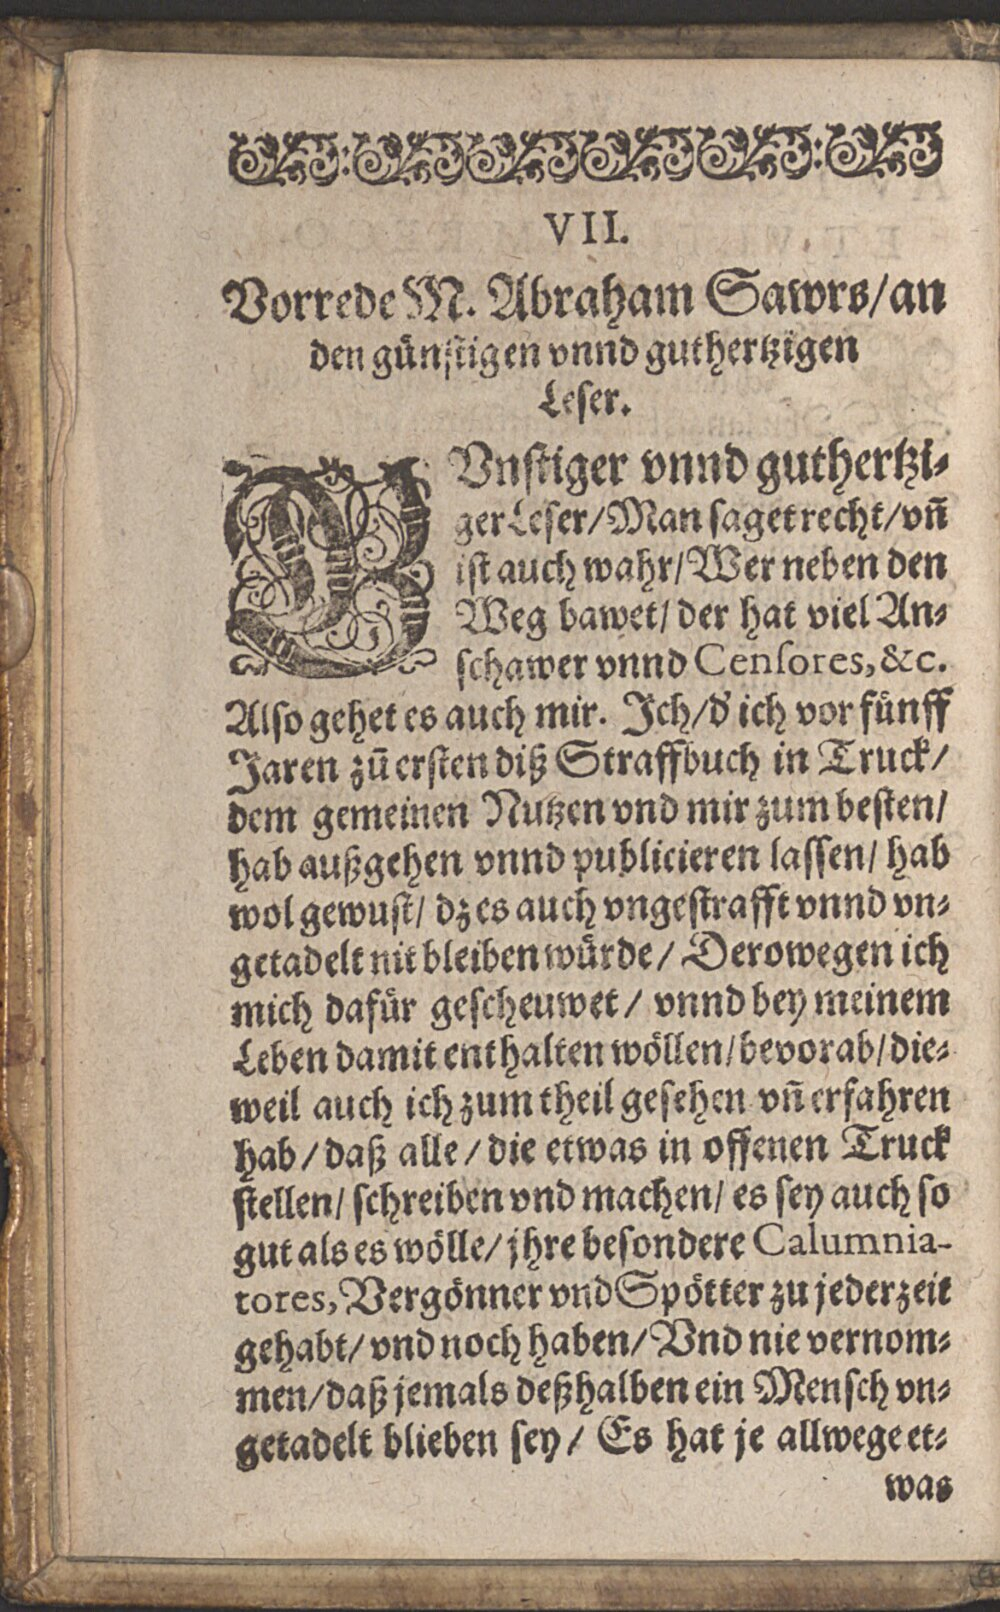 VII.
Vorrede M. Abraham Sawrs/an
den günſtigen vnnd guthertzigen
Leſer.
GVnſtiger vnnd guthertzi⸗
ger Leſer/Man ſaget recht/vn̄
iſt auch wahr/Wer neben den
Weg bawet/der hat viel An⸗
ſchawer vnnd Cenſores, &c.
Alſo gehet es auch mir. Jch/d' ich vor fünff
Jaren zū erſten diß Straffbuch in Truck/
dem gemeinen Nutzen vnd mir zum beſten/
hab außgehen vnnd publicieren laſſen/hab
wol gewuſt/dz es auch vngeſtrafft vnnd vn⸗
getadelt nit bleiben würde/Derowegen ich
mich dafür geſcheuwet/vnnd bey meinem
Leben damit enthalten wöllen/bevorab/die⸗
weil auch ich zum theil geſehen vn̄ erfahren
hab/daß alle/die etwas in offenen Truck
ſtellen/ſchreiben vnd machen/es ſey auch ſo
gut als es wölle/jhre beſondere Calumnia-
tores, Vergönner vnd Spötter zu jederzeit
gehabt/vnd noch haben/Vnd nie vernom⸗
men/daß jemals deßhalben ein Menſch vn⸗
getadelt blieben ſey/Es hat je allwege et⸗
was